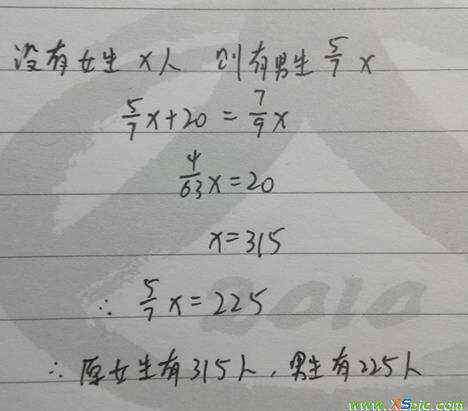 设有女生 x人 则有男生 5/7 x
5/7 x+20 = 7/9 x
4/63 x=20
x=315
∴ 5/7 x=225
∴ 原女生有315人，男生有225人
www.XSpic.com